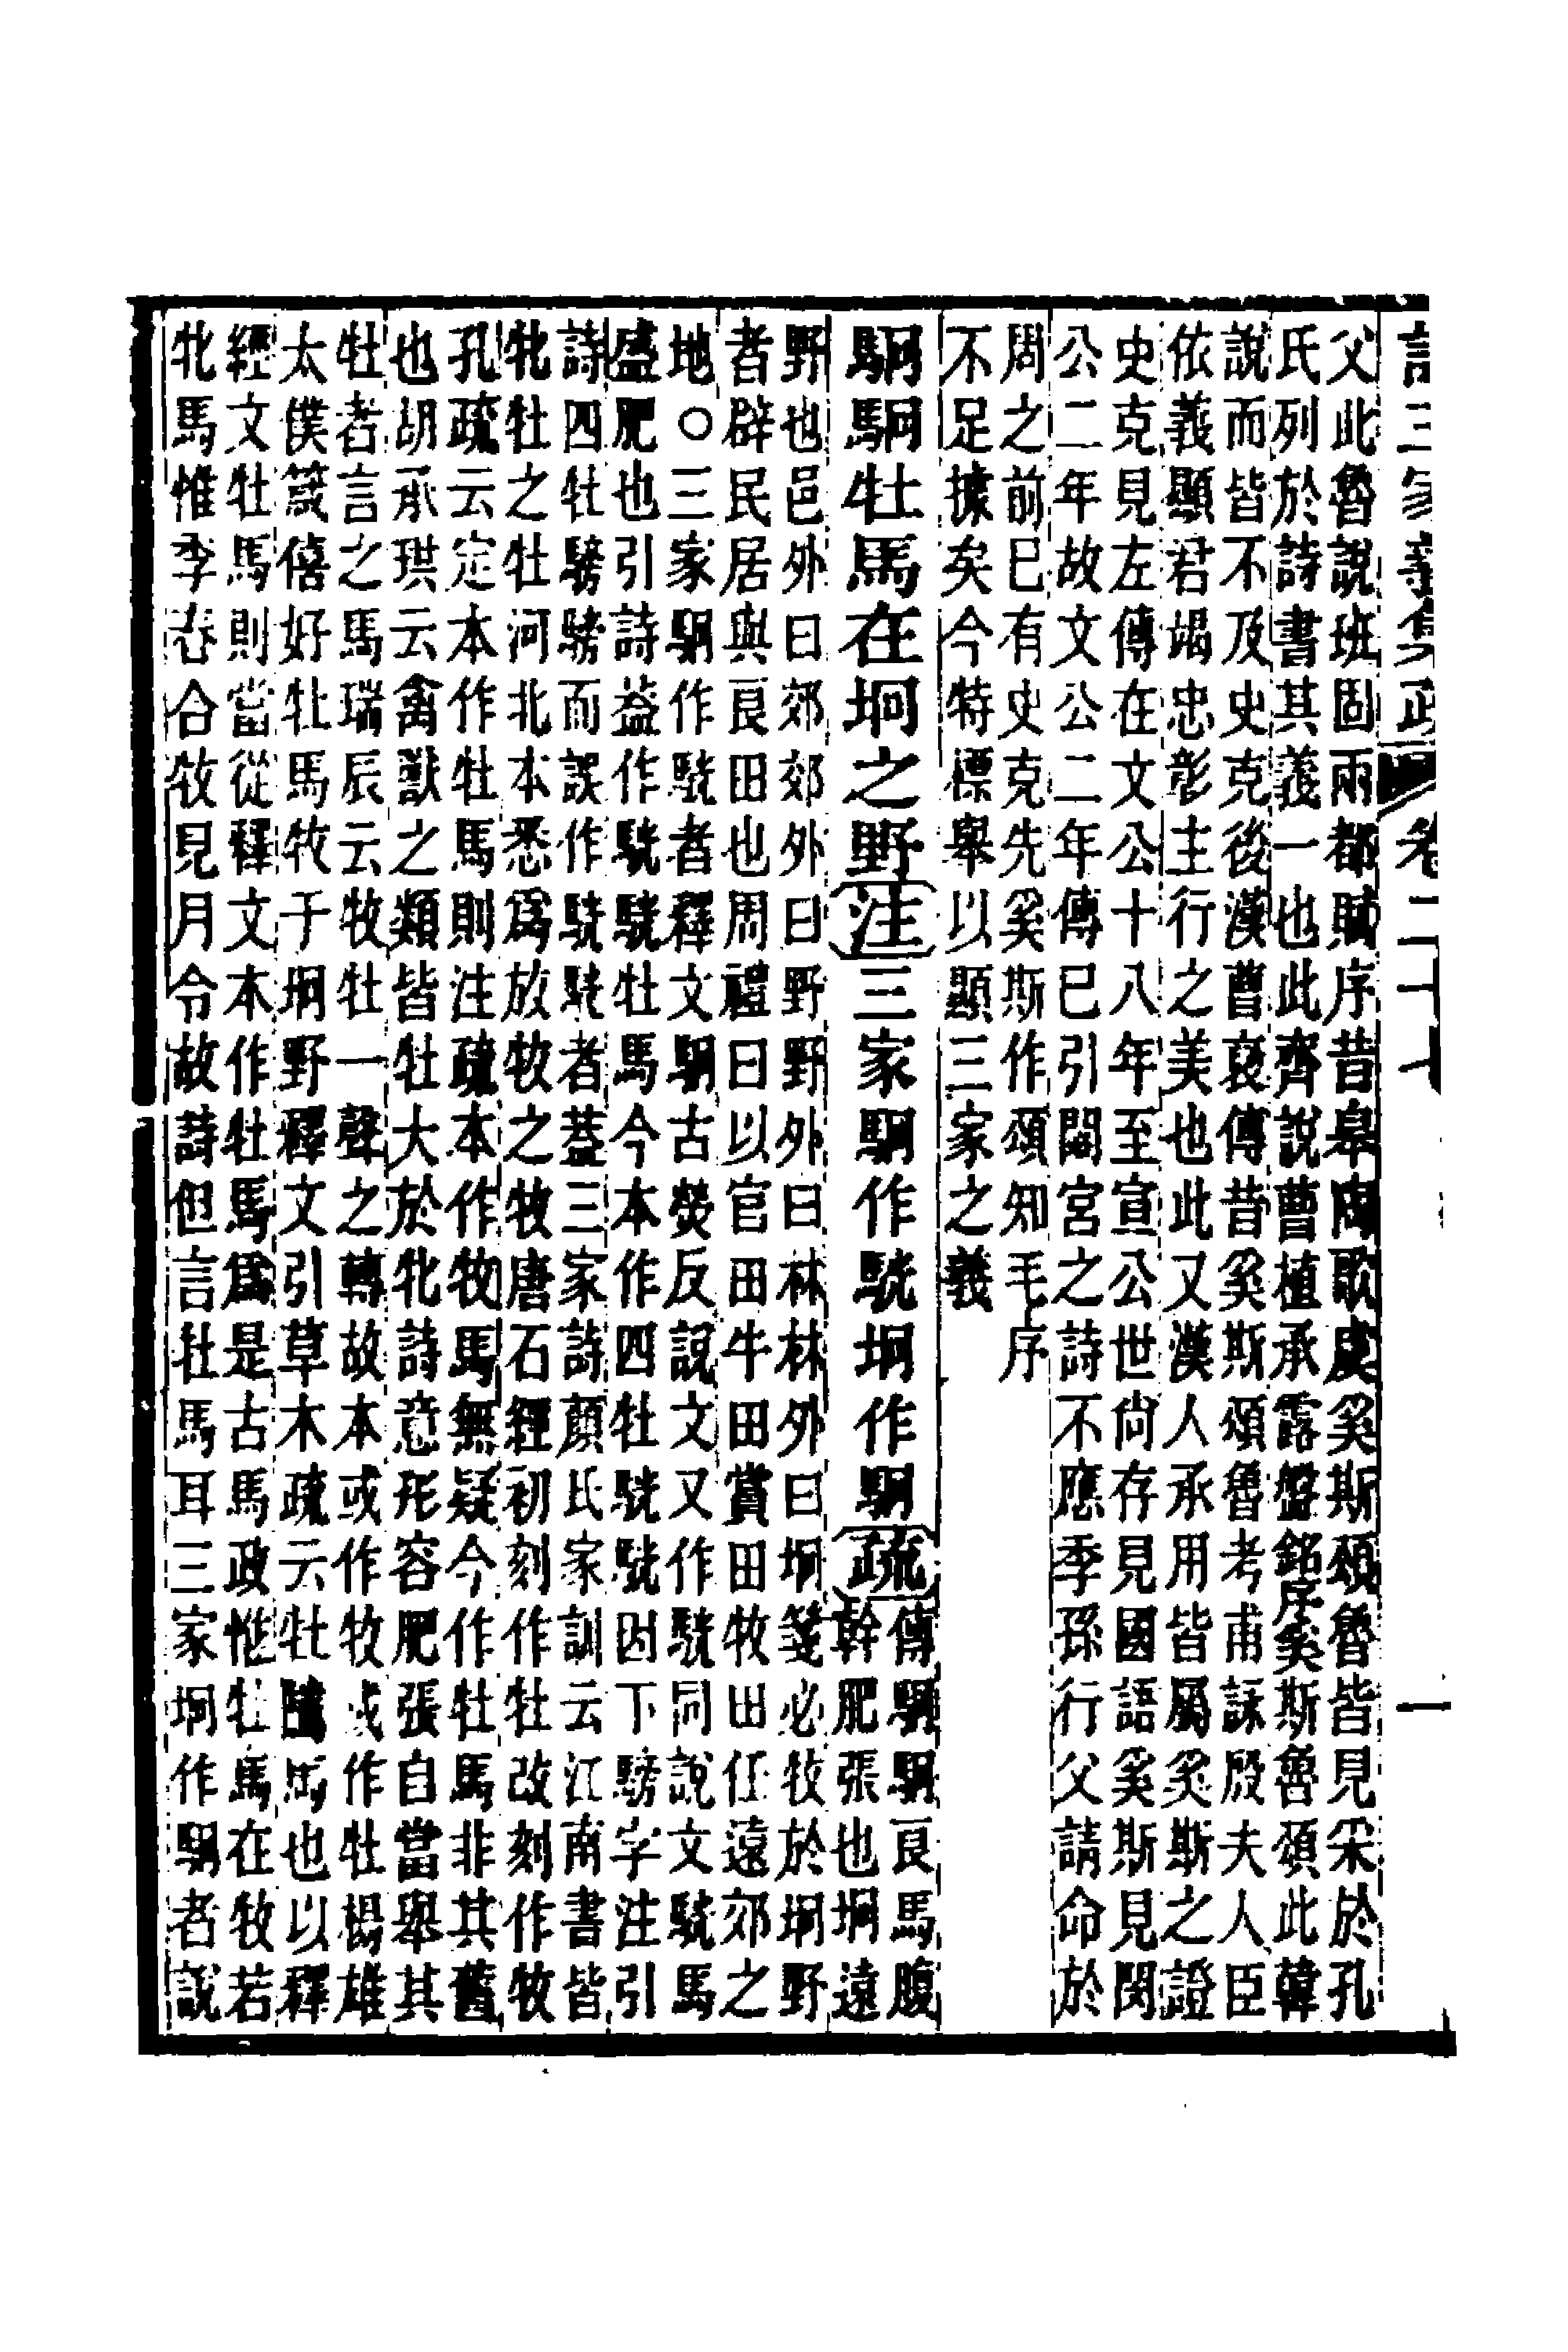 詩三家義集疏 卷二十七 一
父此魯說班固兩都賦序昔皋陶歌虞奚斯頌魯皆見采於孔
氏列於詩書其義一也此齊說曹植承露盤銘序奚斯魯頌此韓
說而皆不及史克後漢曹襃傳昔奚斯頌魯考甫詠殷夫人臣
依義顯君竭忠彰主行之美也此又漢人承用皆屬奚斯之證
史克見左傳在文公十八年至宣公世尚存見國語奚斯見閔
公二年故文公二年傳已引閟宮之詩不應季孫行父請命於
周之前已有史克先奚斯作頌知毛序
不足據矣今特標舉以顯三家之義
駉駉牡馬在坰之野注三家駉作驍坰作駉疏
傳駉駉良馬腹
幹肥張也坰遠
野也邑外曰郊郊外曰野野外曰林林外曰坰箋必牧於坰野
者辟民居與良田也周禮曰以官田牛田賞田牧田任遠郊之
地○三家駉作驍者釋文駉古熒反說文又作驍同說文驍馬
盛肥也引詩益作驍驍牡馬今本作四牡驍因下騯字注引
詩四牡騯騯而誤作驍驍者蓋三家詩顏氏家訓云江南書皆
牝牡之牡河北本悉爲放牧之牧唐石經初刻作牡改刻作牧
孔疏云定本作牡馬則注疏本作牧馬無疑今作牡馬非其舊
也胡承珙云禽獸之類皆牡大於牝詩意形容肥張自當舉其
牡者言之馬瑞辰云牧牡一聲之轉故本或作牧或作牡楊雄
太僕箴僖好牡馬牧于坰野釋文引草木疏云牡騭馬也以釋
經文牡馬則當從釋文本作牡馬爲是古馬政惟牡馬在牧若
牝馬惟季春合牧見月令故詩但言牡馬耳三家坰作駉者說